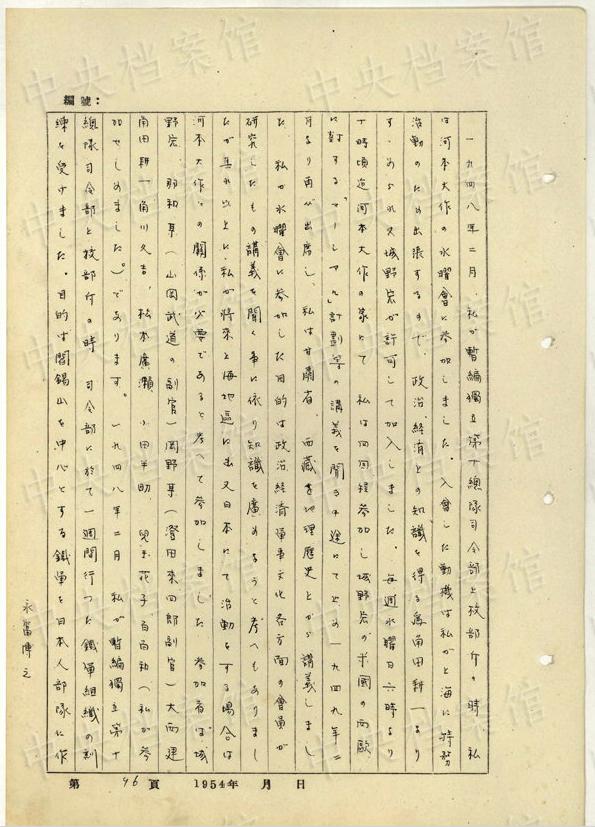 編號：
一九四八年二月、私が暫編獨立第十總隊司令部上校部付の時、私
は河本大作の水曜會に参加しました。入會した動機は私が上海に特務
活動のため出張するので、政治、經済上の知識を得る為角田耕一より
すゝめられ又城野宏が許可して加入しました。毎週水曜日六時より
十時頃迄河本大作の家にて 私は四回程参加し城野宏が米國の西歐
に對する「マーシアル」計劃等の講義を聞き
月より再び出席し、私は甘肅省、西藏等地理歴史
た、私が水曜會に参加した目的は政治經済軍事文化各方面の會員が
研究したもの講義を聞く事に依り知識を廣めようと考へもありまし
たが其れ以上に、私が將来上海地區に
河本大作との關係が必要であると考へて参加しました 参加者は城
野宏、羽和某（山岡武道の副官）岡野某（澄田來四郎副官）大西建
角田耕一角川久吉、松本廣瀬 小田半助、兒玉花子、百百和（私が参
加せしめました。）であります。 一九四八年二月 私が暫編獨立第十
總隊司令部上校部付の時、司令部に於て一週間行った鐵軍組織の訓
練を受けました。目的は閻錫山を中心とする鐵軍を日本人部隊に作
永富博之
第 46 頁 1954年 月 日
中央档案馆